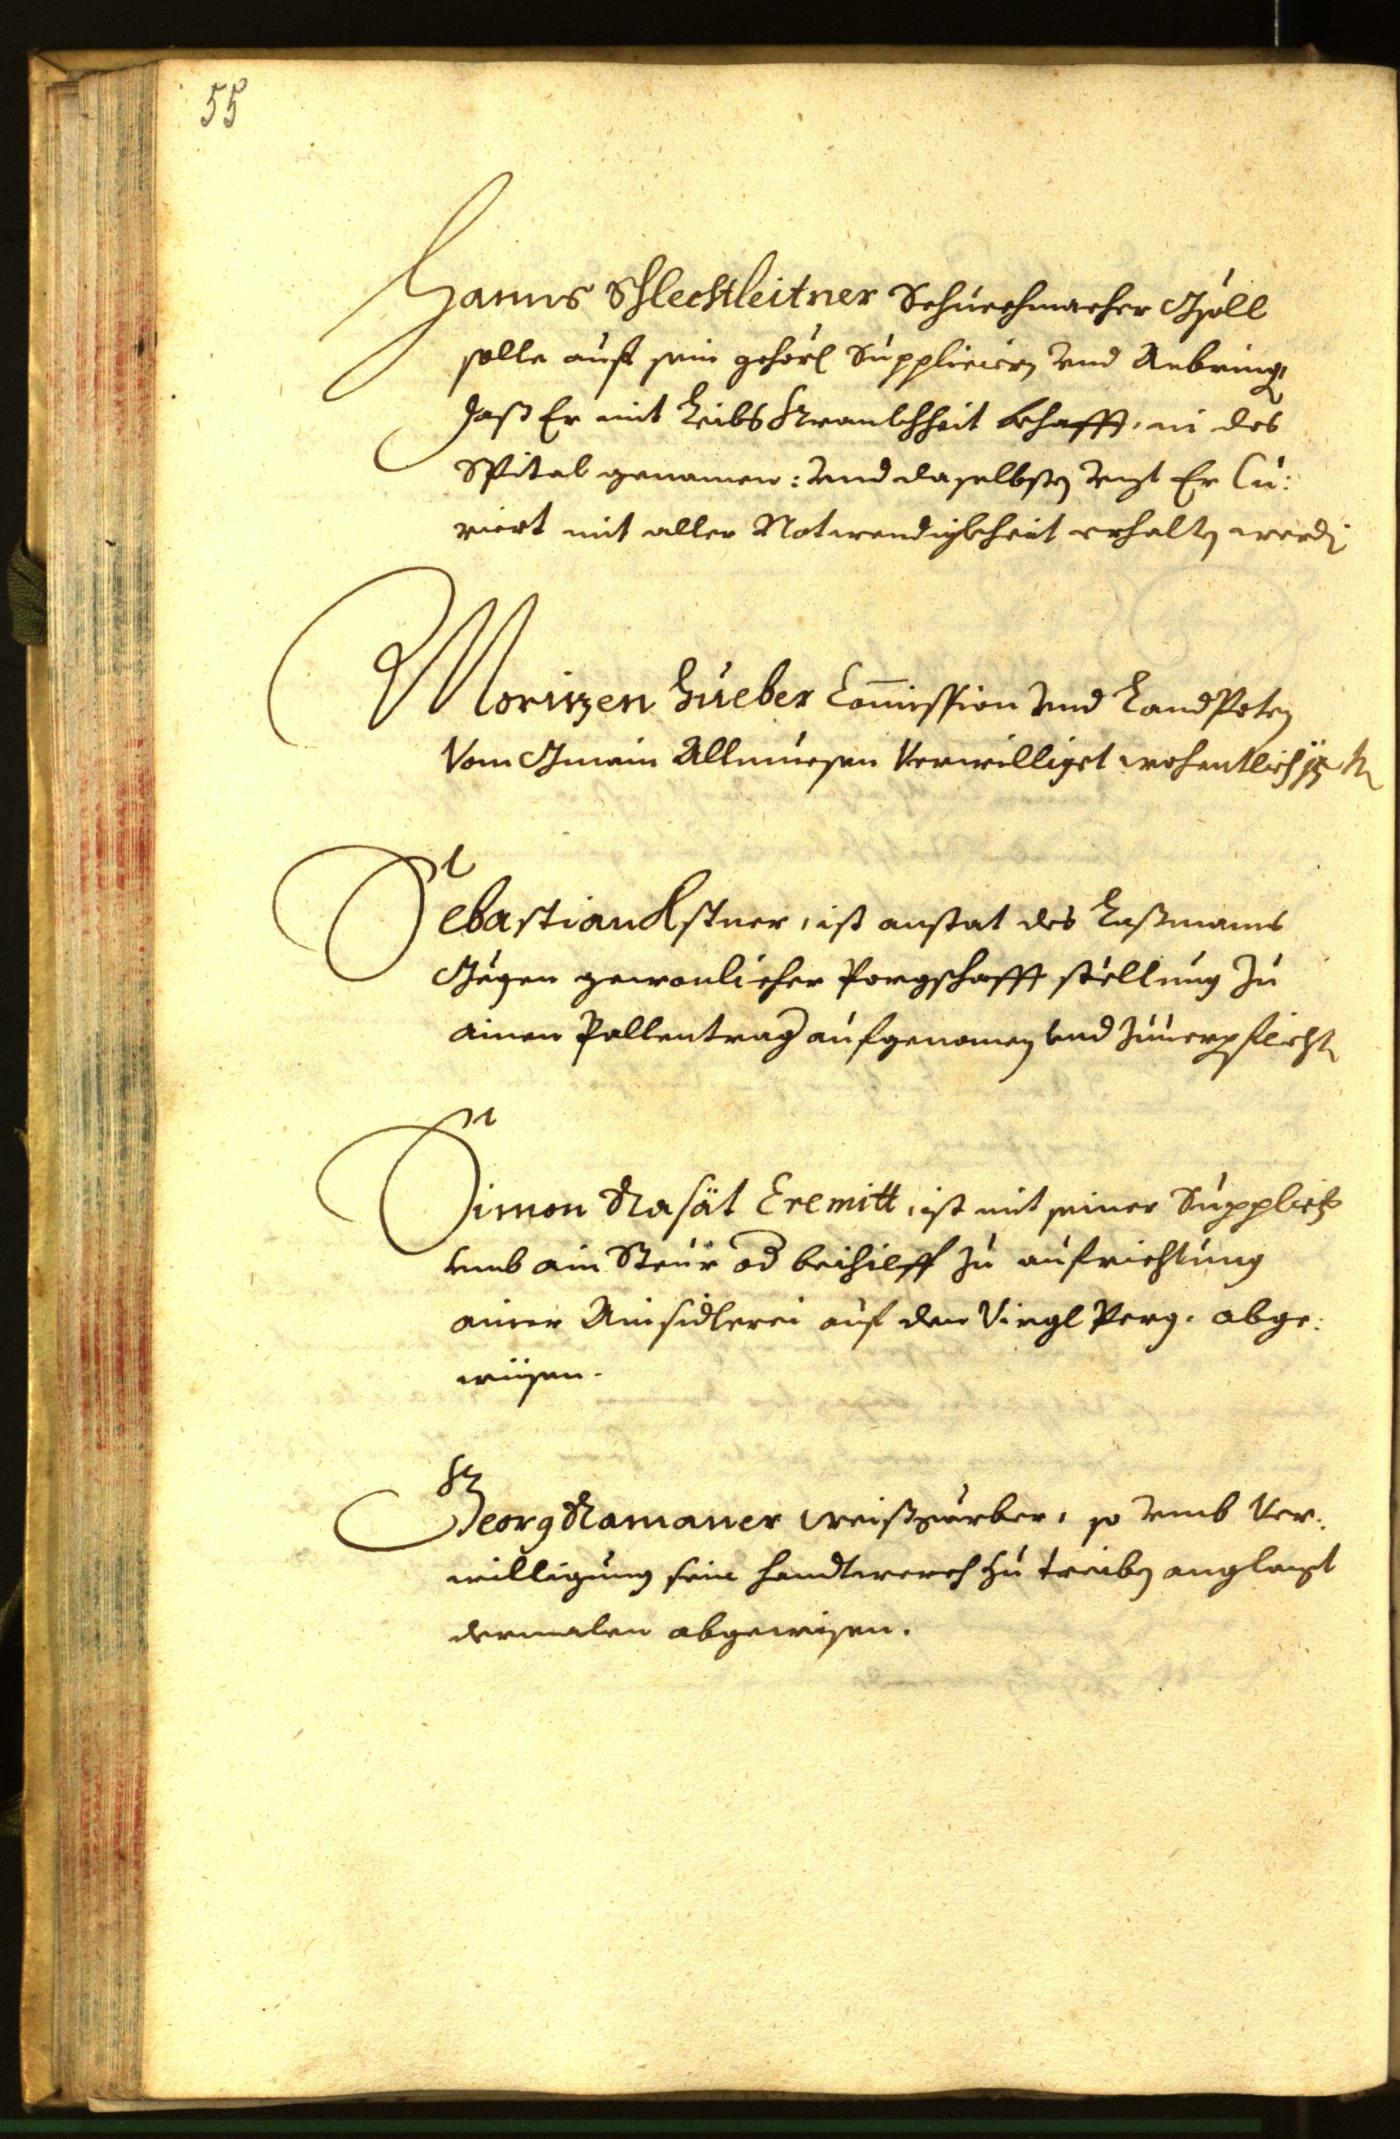 55
Hanns Schlechtleitner Schuechmacher Gsöll
solle auf sein gehorſ Suppliciern vnd Anbringen
daß Er mit Leibs Kranckhheit behafft, in des
Spital genomen: vnd daselbsten vnzt Er Cu:
riert mit aller Notwendigkheit erhalten werden
Moritzen Hueber Comission vnd LandPoten
Vom Gmain Allmuesen Verwilliget wochentlich
Sebastian Astner, ist anstat des Laßmanns
Gegen gewonlicher Porgschafft stellung zu
ainen Pallentrag aufgenomen vnd zuuerpflichten
Simon Rasät Eremitt, ist mit seiner Supplicē
vmb ain Steur od beihilff zu aufrichtung
ainer Ainsidlerei auf den Virgl Perg. abge:
wüsen.
Georg Ramaner weißgärber, so vmb Ver:
willigung sein handtwerch zu treiben anglangt
dermalen abgewisen.